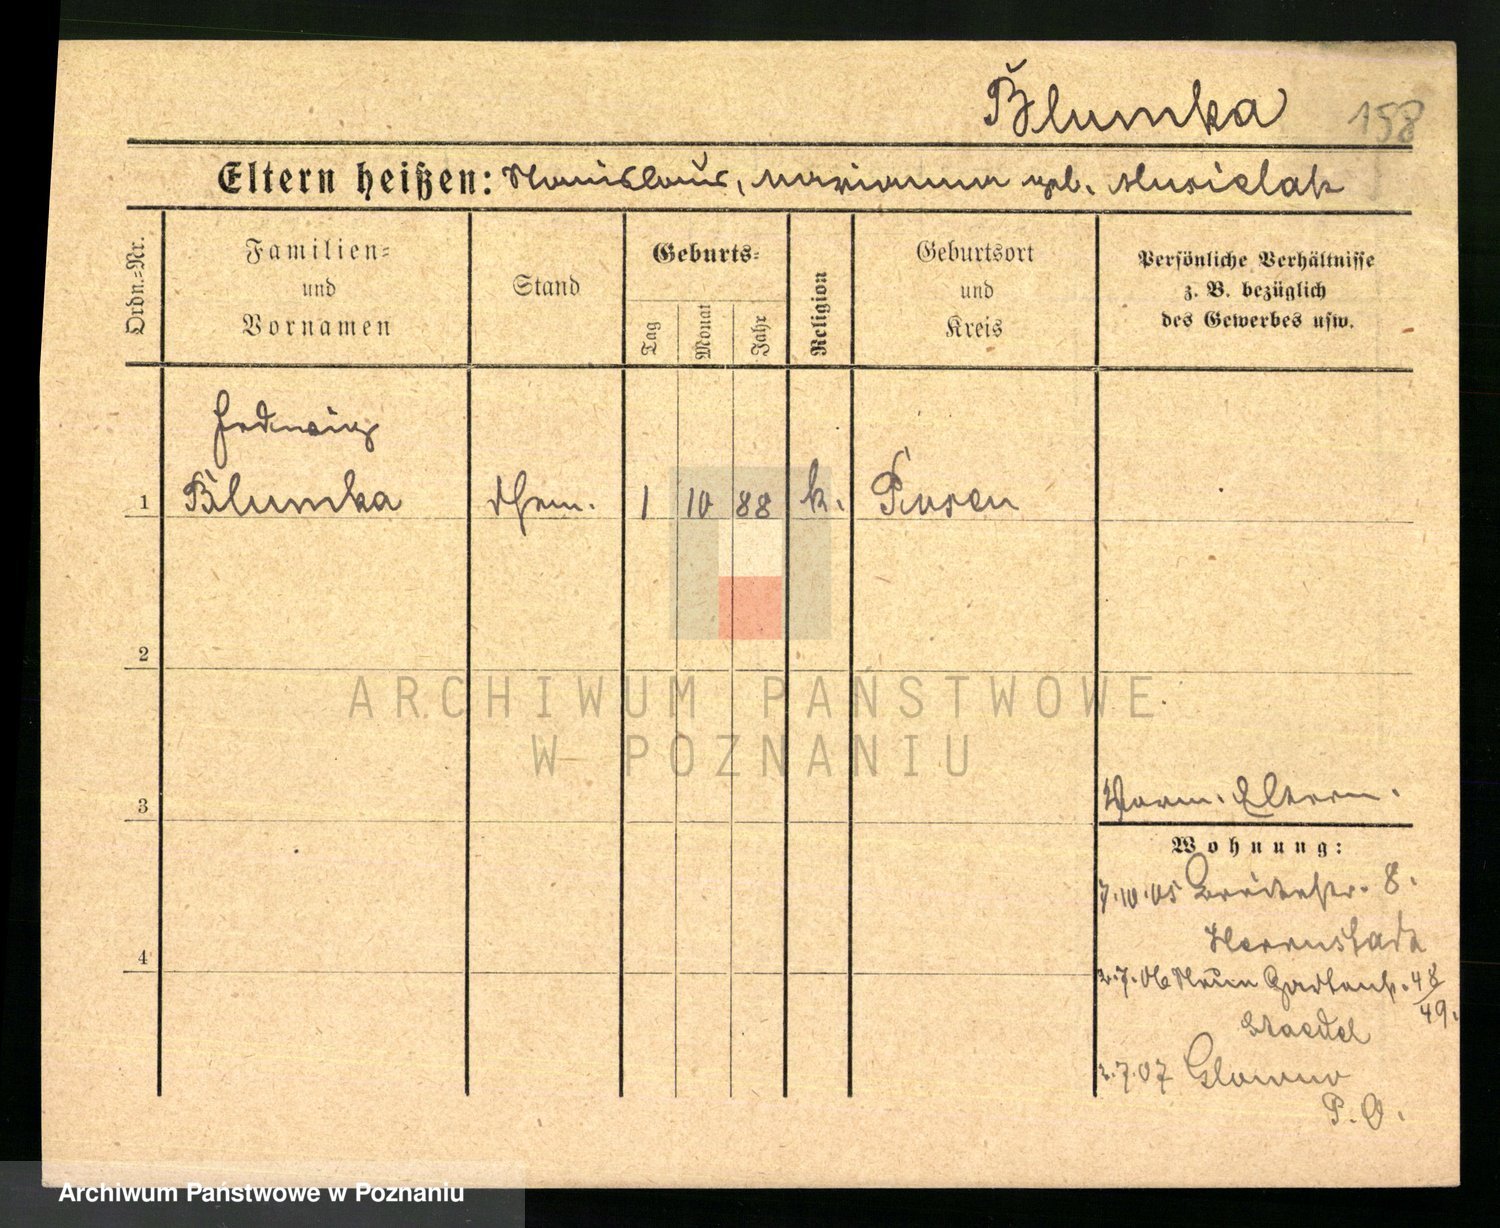 Blumka 158
Eltern heißen: Stanislaus, Marianna geb. Musielak
Ordn.=Nr.
Familien=
und
Vornamen
Stand
Geburts=
Tag
Monat
Jahr
Religion
Geburtsort
und
Kreis
Persönliche Verhältnisse
z. B. bezüglich
des Gewerbes usw.
Hedwig
1 Blumka 1 10 88 k. Posen
2
3
4
Eltern.
Wohnung:
7.10.05 8.
2.7.06 Gartenstr. 48/49.
2.7.07 Glowno
P. O.
ARCHIWUM PAŃSTWOWE
W POZNANIU
Archiwum Państwowe w Poznaniu